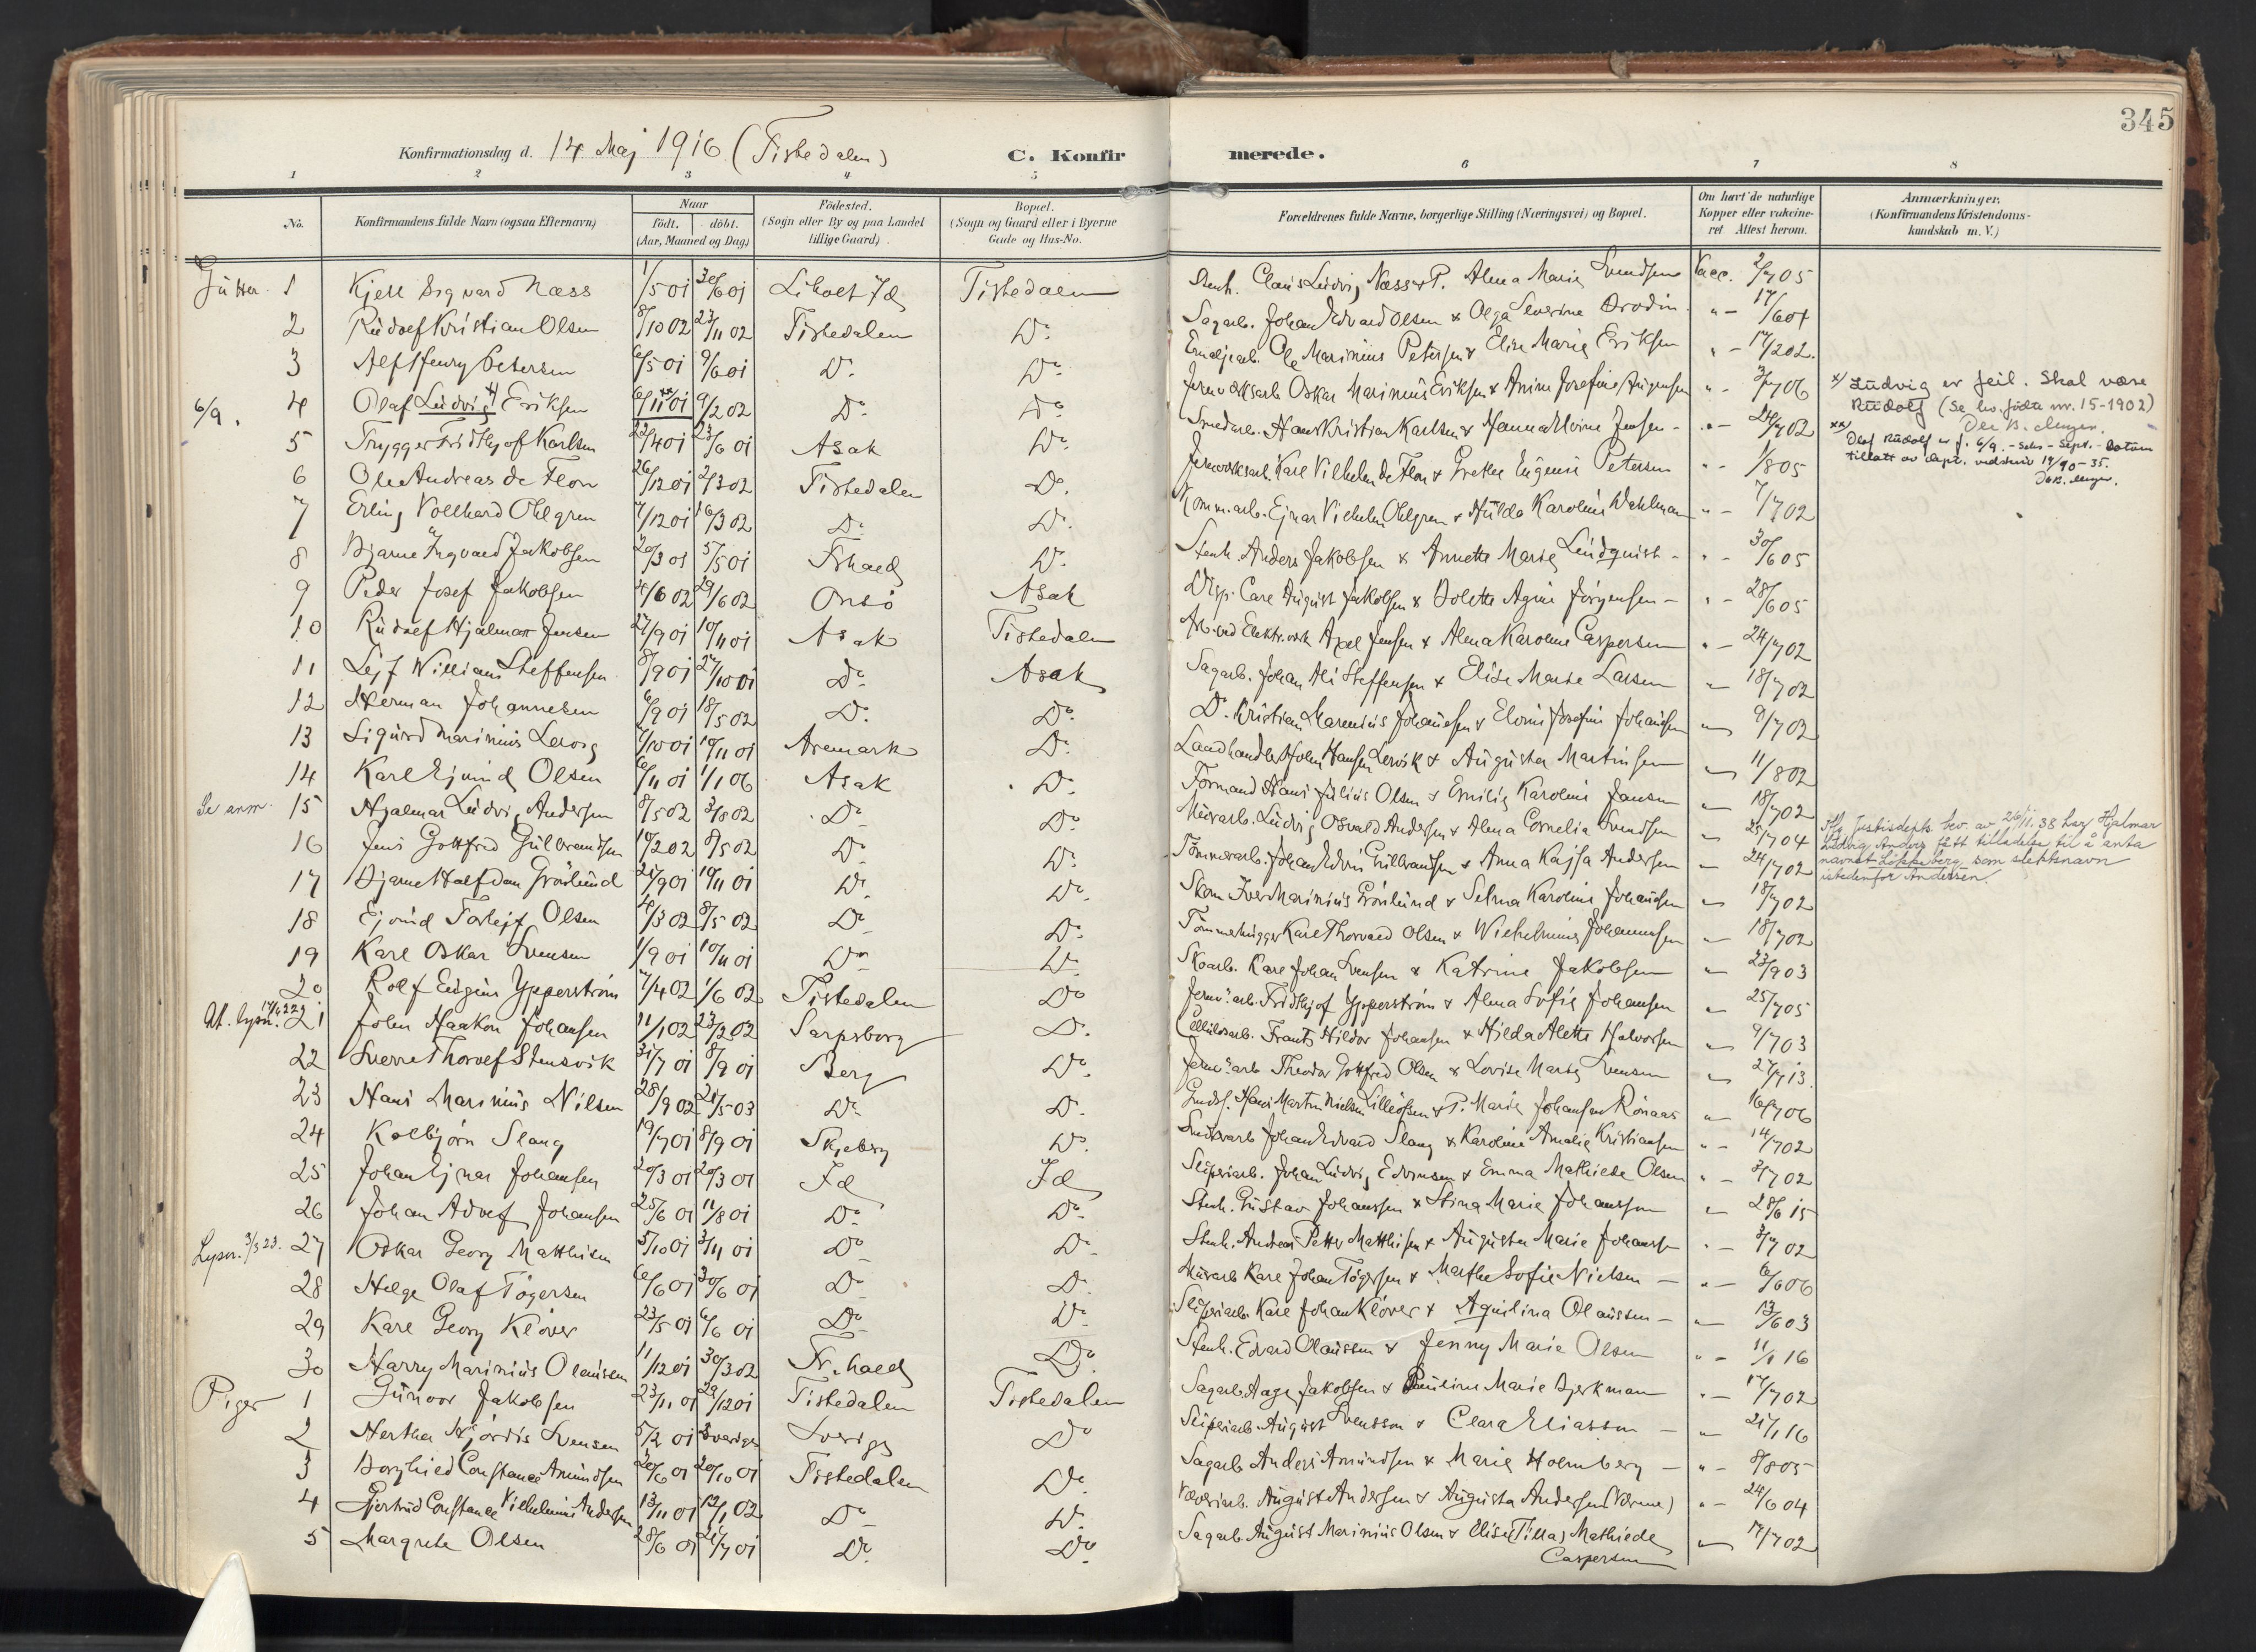 345
Konfirmationsdag d. 14 Maj 1916 (Tistedalen) C. Konfirmerede.
1 2 3 4 5 6 7 8
No. Konfirmandens fulde Navn (ogsaa Efternavn) Naar født. døbt. (Aar, Maaned og Dag) Fødested. (Sogn eller By og paa Landet tillige Gaard) Bopæl. (Sogn og Gaard eller i Byerne Gade og Hus-No. Forældrenes fulde Navne, borgerlige Stilling (Næringsvei) og Bopæl. Om havt de naturlige Kopper eller vakcineret Attest herom. Anmærkninger. (Konfirmandens Kristendomskundskab m. V.)
Gutter 1 Kjell Sigvard Næss 1/5 01 30/6 01 Tistedalen Claus Ludvig Næss Alma Marie Svendsen Vacc. 2/7 05
2 Rudolf Kristian Olsen 8/10 02 23/11 02 Tistedalen Do Sagarb. Johan Edvard Olsen & Olga Severine Brodin "- 17/6 04
3 Alf Henry Petersen 6/5 01 9/6 01 Do Do Ole Marinius Petersen & Elise Marie Eriksen "- 17/2 02.
6/9. 4 Olaf Ludvig x) Eriksen 6/11 01 xx) 9/2 02 Do Do Jernverksarb. Oskar Marinius Eriksen & Josefine Jørgensen "- 3/7 06
x) Ludvig er feil. Skal være
Rudolf (Se lev. fødte nr. 15-1902)
xx) Olaf Rudolf er f. 6/9.
5 Trygge Fridthjof Karlsen 22/4 01 23/6 01 Asak Do Smedarb. Hans Kristian Karlsen & Hanna Elvine Jensen "- 24/7 02
6 Ole Andreas de Flon 26/12 01 2/3 02 Tistedalen Do Jernverksarb. Karl Vilhelm De Flon & Grethe Eugenie Petersen "- 1/8 05
7 Erling Vollhard Ohlgren 7/12 01 16/3 02 Do Do Komm.arb. Ejnar Vilhelm Ohlgren & Hulda Karoline Wahlman "- 7/7 02
8 Bjarne Ingvald Jakobsen 20/3 01 5/5 01 Frhald Do Stenh. Anders Jakobsen & Annette Marie Lundquist "- 30/6 05
9 Peder Josef Jakobsen 4/6 02 29/6 02 Onsö Asak Carl August Jakobsen & Bolette Agine Jörgensen "- 28/6 05
10 Rudolf Hjalmar Jensen 27/9 01 10/11 01 Asak Tistedalen Arb. ved Elektr.verk Axel Jensen & Alma Karoline Caspersen "- 24/7 02
11 Lejf William Steffensen 8/9 01 27/10 01 Do Asak Sagarb. Johan Ali Steffensen & Elise Marie Larsen - 18/7 02
12 Herman Johannesen 6/9 01 18/5 02 Do Do Do Kristian Marenius Johansen & Elvine Josefine Johansen - 9/7 02
13 Sigurd Marinius Lervig 7/10 01 10/11 01 Aremark Do Landhandler John Hansen Lervik & Augusta Martinsen - 11/8 02
14 Karl Ejvind Olsen 6/11 01 1/1 06 Asak Do Formand Hans Julius Olsen & Emilie Karoline Jansen - 18/7 02
Se anm. 15 Hjalmar Ludvig Andersen 8/5 02 3/8 02 Do Do Murarb. Ludvig Osvald Andersen & Alma Cornelia Svendsen - 25/7 04
Iflg. Justisdepts. bev. av 25/11.38 har Hjalmar
Ludvig Anders. fått tilladelse til å anta
navnet Lökkeberg som slektsnavn
istedenfor Andersen.
16 Jens Gottfred Gulbrandsen 10/2 02 8/5 02 Do Do Tömmerarb. Johan Edvin Gulbrandsen & Anna Kajsa Andersen - 24/7 02
17 Bjarne Halfdan Grönlund 21/9 01 10/11 01 Do Do Skom. Iver Marinius Grönlund & Selma Karoline Johansen - 18/7 02
18 Ejvind Torlejf Olsen 4/3 02 8/5 02 Do Do Tömmerhugger Karl Thorvald Olsen & Wilhelmine Johannesen - 18/7 02
19 Karl Oskar Svensen 1/9 01 10/11 01 Do Do Skoarb. Karl Johan Svensen & Katrine Jakobsen - 23/9 03
20 Rolf Eugen Ypperström 7/4 02 1/6 02 Tistedalen Do Jernv.arb. Fridthjof Ypperström & Alma Sofie Johansen - 25/7 05
At. lysn. 17/4 22 21 John Haakon Johansen 11/1 02 23/2 02 Sarpsborg Do Cellulosarb. Frants Hildor Johansen & Hilda Alette Halvorsen - 9/7 03
22 Sverre Thorolf Stensvik 31/7 01 8/9 01 Berg Do Jernv.arb Theodor Gottfred Olsen & Lovise Marie Svensen - 27/7 13.
23 Hans Marinius Nilsen 28/9 02 21/5 03 Do Do Hans Martin Nielsen & P. Marie Johansen Rönaas - 16/7 06
24 Kolbjörn Slang 19/7 01 8/9 01 Skjeberg Do Johan Edvard Slang & Karoline Amalie Kristiansen "- 14/7 02
25 Johan Ejnar Johansen 20/3 01 20/3 01 Id Id Sliperiarb. Johan Ludvig Edvinsen & Emma Mathilde Olsen "- 3/7 02
26 Johan Adolf Johansen 25/6 01 11/8 01 Do Do Stenh. Gustav Johansen & Stina Marie Johansson - 28/6 15
Lysn. 3/3 23. 27 Oskar Georg Matthisen 5/10 01 3/11 01 Do Do Stenh. Andreas Petter Matthisen & Augusta Marie Johans "- 3/7 02
28 Helge Olaf Tögersen 6/6 01 30/6 01 Do Do Murarb Karl Johan Tögersen & Marthe Sofie Nielsen "- 6/6 06
29 Karl Georg Klöver 23/5 01 6/6 01 Do Do Sliperiarb. Karl Johan Klöver & Aquilina Olaussen - 13/6 03
30 Harry Marinius Olaussen 11/12 01 30/3 02 Fr.hald Do Stenh. Edvard Olaussen & Jenny Marie Olsen "- 11/1 16
Piger 1 Gunvor Jakobsen 23/11 01 29/12 01 Tistedalen Tistedalen Sagarb. Aage Jakobsen & Pauline Marie Bjerkman "- 17/7 02
2 Hertha Hjördis Svensen 5/2 01 Sverige Sverige Do Sliperiarb. August Svensson & Clara Eliasson - 21/1 16
3 Borghild Constance Amundsen 20/6 01 20/10 01 Tistedalen Do Sagarb Anders Amundsen & Marie Holmberg "- 8/8 05
4 Gjertrud Constance Vilhelmine Andersen 13/11 01 12/1 02 Do Do Væveriarb. August Andersen & Augusta Andersen "- 24/6 04
5 Margrete Olsen 28/6 01 21/7 01 Do Do Sagarb. August Marinius Olsen & Elise (Tilla) Mathilde - 17/7 02
Caspersen